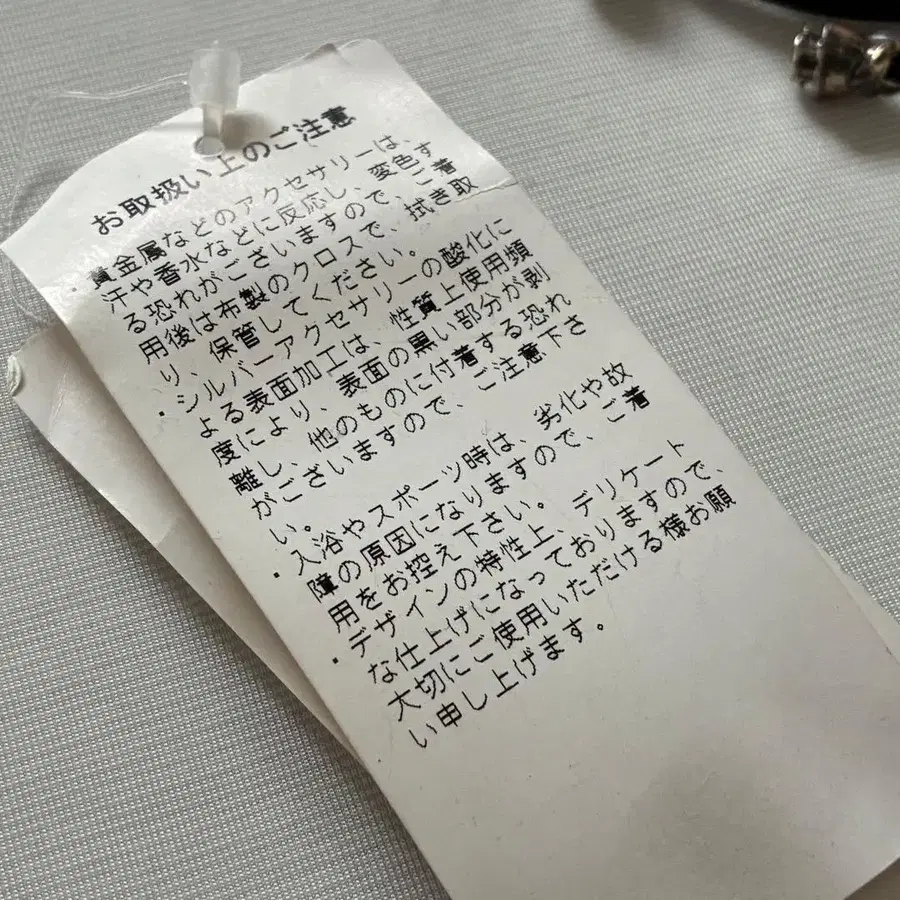 お取扱い上のご注意
・貴金属などのアクセサリーは、
汗や香水などに反応し、変色す
る恐れがございますので、ご着
用後は布製のクロスで、拭き取
り、保管してください。
・シルバーアクセサリーの酸化に
よる表面加工は、性質上使用頻
度により、表面の黒い部分が剥
離し、他のものに付着する恐れ
がございますので、ご注意下さ
い。
・入浴やスポーツ時は、劣化や故
障の原因になりますので、ご着
用をお控え下さい。
・デザインの特性上、デリケート
な仕上げになっておりますので、
大切にご使用いただける様お願
い申し上げます。